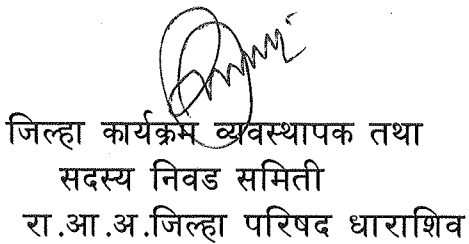 जिल्हा कार्यक्रम व्यवस्थापक तथा
सदस्य निवड समिती
रा.आ.अ.जिल्हा परिषद धाराशिव